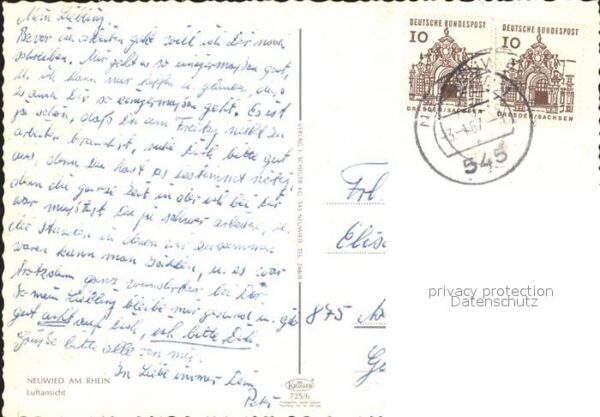 Mein Liebling.
Bevor ich arbeiten geht will ich Dir noch
schreiben. Mir geht es so einigermaßen gut,
u. ich kann nur hoffen u. glauben, daß
es auch Dir so einigermaßen geht. Es ist
ja schön, daß Du am Freitag nicht zu
arbeiten brauchst, ruhe Dich bitte gut
aus, denn Du hast es bestimmt nötig,
denn die ganze Zeit in der ich bei Dir
war mußtest Du ja schwer arbeiten, u.
die Stunden in denen wir zusammen
waren kann man zählen, u. es war
trotzdem ganz wunderbar bei Dir.
So mein Liebling bleibe mir gesund u.
gut acht auf Dich, ich bitte Dich.
Grüße bitte alle von mir.
In Liebe immer Dein
NEUWIED AM RHEIN
Luftansicht
725/6
VERLAG J. SCHEUER KG. 545 NEUWIED, TEL. 24809
DEUTSCHE BUNDESPOST
10
DRESDEN/SACHSEN
DEUTSCHE BUNDESPOST
10
DRESDEN/SACHSEN
545
Frl.
Elis
875
privacy protection
Datenschutz